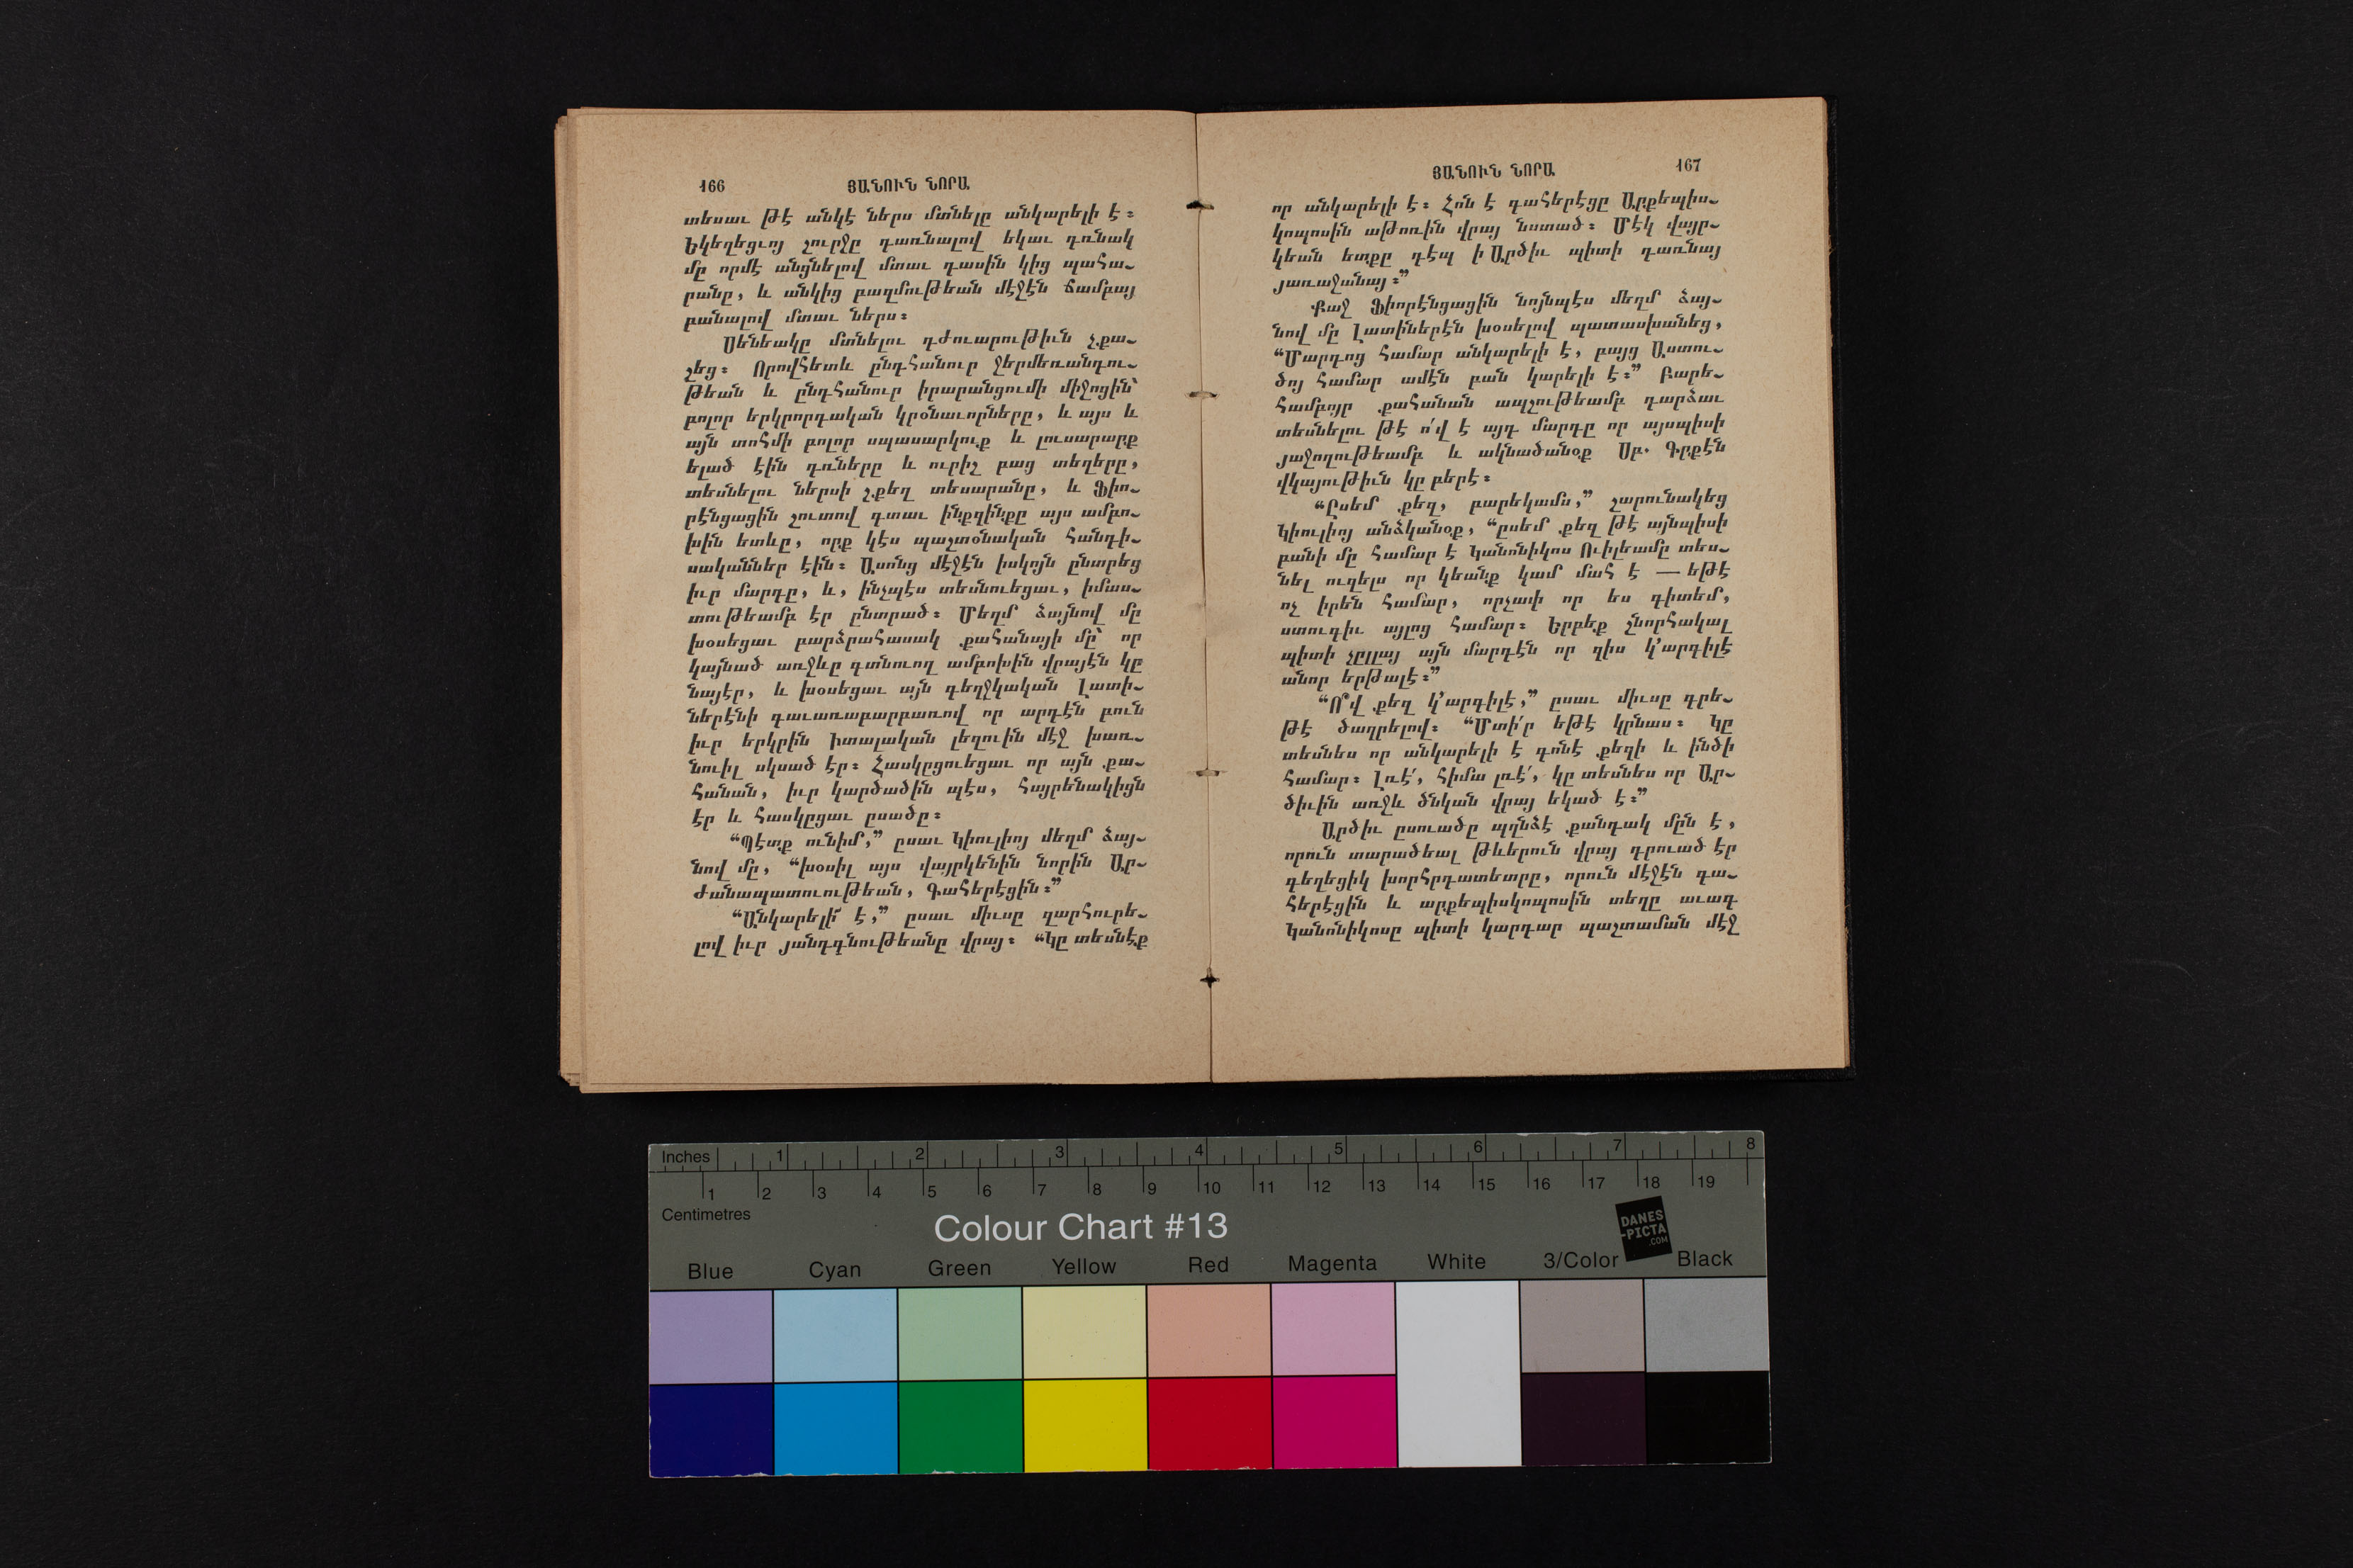 166
ՅԱՆՈՒՆ ՆՈՐԱ
տեսաւ թէ անկէ ներս մտնելը անկարելի է։
Եկեղեցւոյ շուրջը դառնալով եկաւ դռնակ
մը որմէ անցնելով մտաւ դասին կից պահա-
րանը, և անկից բազմութեան մէջէն ճամբայ
բանալով մտաւ ներս։
Սենեակը մտնելու դժուարութիւն չքա-
շեց։ Որովհետև ընդհանուր ջերմեռանդու-
թեան և ընդհանուր իրարանցումի միջոցին՝
բոլոր երկրորդական կրօնաւորները, և այս և
այն տոհմի բոլոր սպասարկուք և լուսարարք
ելած էին դռները և ուրիշ բաց տեղերը,
տեսնելու ներսի չքեղ տեսարանը, և Ֆիո-
րէնցացին շուտով գտաւ ինքզինքը այս ամբո-
խին ետևը, որք կէս պաշտօնական հանդի-
սականներ էին։ Ասոնց մէջէն իսկոյն ընտրեց
իւր մարդը, և, ինչպէս տեսնուեցաւ, իմաս-
տութեամբ էր ընտրած։ Մեղմ ձայնով մը
խօսեցաւ բարձրահասակ քահանայի մը՝ որ
կայնած առջևը գտնուող ամբոխին վրայէն կը
նայէր, և խօսեցաւ այն գեղջկական Լատի-
ներէնի գաւառաբարբառով որ արդէն բուն
իւր երկրին Իտալական լեզուին մէջ խառ-
նուիլ սկսած էր։ Հասկըցուեցաւ որ այն քա-
հանան, իւր կարծածին պէս, հայրենակիցն
էր և հասկըցաւ ըսածը։
“Պէտք ունիմ,” ըսաւ Կիուլիոյ մեղմ ձայ-
նով մը, “խօսիլ այս վայրկենին նորին Ար-
ժանապատուութեան, Գահերէցին։”
“Անկարելի՜ է,” ըսաւ միւսը զարհուրե-
լով իւր յանդգնութեանը վրայ։ “Կը տեսնէք
ՅԱՆՈՒՆ ՆՈՐԱ
167
որ անկարելի է։ Հոն է գահերէցը Արքեպիս-
կոպոսին աթոռին վրայ նստած։ Մէկ վայր-
կեան ետքը դէպ ի Արծիւ պիտի դառնայ
յառաջանայ։”
Քաջ Ֆիորէնցացին նոյնպէս մեղմ ձայ-
նով մը Լատիներէն խօսելով պատասխանեց,
“Մարդոց համար անկարելի է, բայց Աստու-
ծոյ համար ամէն բան կարելի է։” Բարե-
համբոյր քահանան ապշութեամբ դարձաւ
տեսնելու թէ ո՛վ է այդ մարդը որ այսպիսի
յաջողութեամբ և ակնածանօք Սբ. Գրքէն
վկայութիւն կը բերէ։
“Ըսեմ քեզ, բարեկամս,” շարունակեց
Կիուլիոյ անձկանօք, “ըսեմ քեզ թէ այնպիսի
բանի մը համար է Կանոնիկոս Ուիլեամը տես-
նել ուզելս որ կեանք կամ մահ է — եթէ
ոչ իրեն համար, որչափ որ ես գիտեմ,
ստուգիւ այլոց համար։ Երբեք շնորհակալ
պիտի չըլլայ այն մարդէն որ զիս կ’արգիլէ
անոր երթալէ։”
“Ո՞վ քեզ կ’արգիլէ,” ըսաւ միւսը գրե-
թէ ծաղրելով։ “Մտի՛ր եթէ կրնաս։ Կը
տեսնես որ անկարելի է գոնէ քեզի և ինծի
համար։ Լռէ՛, հիմա լռէ՛, կը տեսնես որ Ար-
ծիւին առջև ծնկան վրայ եկած է։”
Արծիւ ըսուածը պղնձէ քանդակ մըն է,
որուն տարածեալ թևերուն վրայ դրուած էր
գեղեցիկ խորհրդատետրը, որուն մէջէն գա-
հերէցին և արքեպիսկոպոսին տեղը աւագ
Կանոնիկոսը պիտի կարդար պաշտաման մէջ
Inches 1 2 3 4 5 6 7 8
1 2 3 4 5 6 7 8 9 10 11 12 13 14 15 16 17 18 19
Centimetres
Colour Chart #13
DANES
-PICTA
.COM
Blue Cyan Green Yellow Red Magenta White 3/Color Black